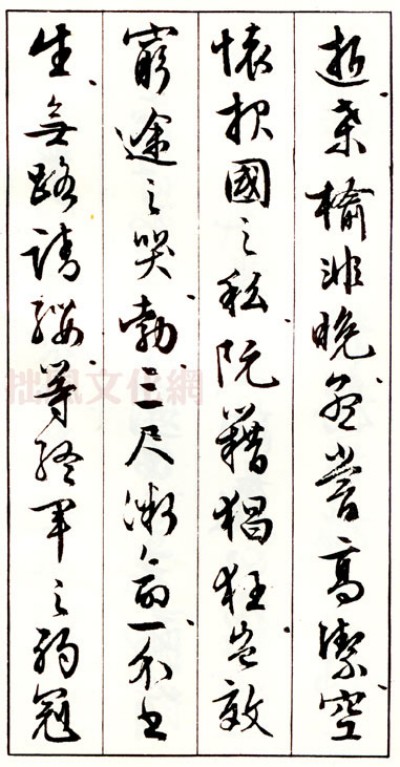 逝桑榆非晚孟嘗高潔空
懷報國之私阮籍猖狂豈效
窮途之哭勃三尺微命一介書
生無路請纓等終軍之弱冠
拙風文化網